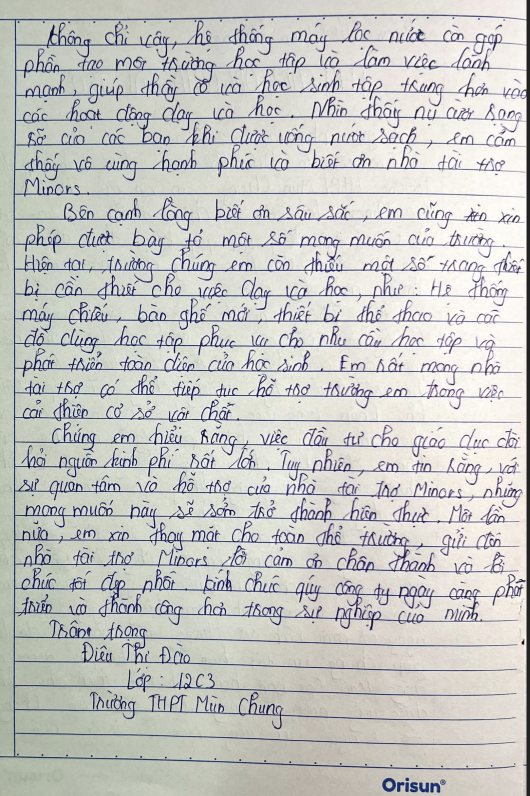 Không chỉ vậy, hệ thống máy lọc nước còn góp
phần tạo môi trường học tập và làm việc lành
mạnh, giúp thầy cô và học sinh tập trung hơn vào
các hoạt động dạy và học. Nhìn thấy nụ cười rạng
rỡ của các bạn khi được uống nước sạch, em cảm
thấy vô cùng hạnh phúc và biết ơn nhà tài trợ
Minors.
Bên cạnh lòng biết ơn sâu sắc, em cũng xin
phép được bày tỏ một số mong muốn của trường.
Hiện tại, trường chúng em còn thiếu một số trang thiết
bị cần thiết cho việc dạy và học, như: Hệ thống
máy chiếu, bàn ghế mới, thiết bị thể thao và các
đồ dùng học tập phục vụ cho nhu cầu học tập và
phát triển toàn diện của học sinh. Em rất mong nhà
tài trợ có thể tiếp tục hỗ trợ trường em trong việc
cải thiện cơ sở vật chất.
Chúng em hiểu rằng, việc đầu tư cho giáo dục đòi
hỏi nguồn kinh phí rất lớn. Tuy nhiên, em tin rằng, với
sự quan tâm và hỗ trợ của nhà tài trợ Minors, những
mong muốn này sẽ sớm trở thành hiện thực. Một lần
nữa, em xin thay mặt cho toàn thể trường, gửi đến
nhà tài trợ Minors lời cảm ơn chân thành và lời
chúc tốt đẹp nhất. Kính chúc qúy công ty ngày càng phát
triển và thành công hơn trong sự nghiệp của mình.
Trân trọng
Điêu Thị Đào
Lớp: 12C3
Trường THPT Mùn Chung
Orisun®